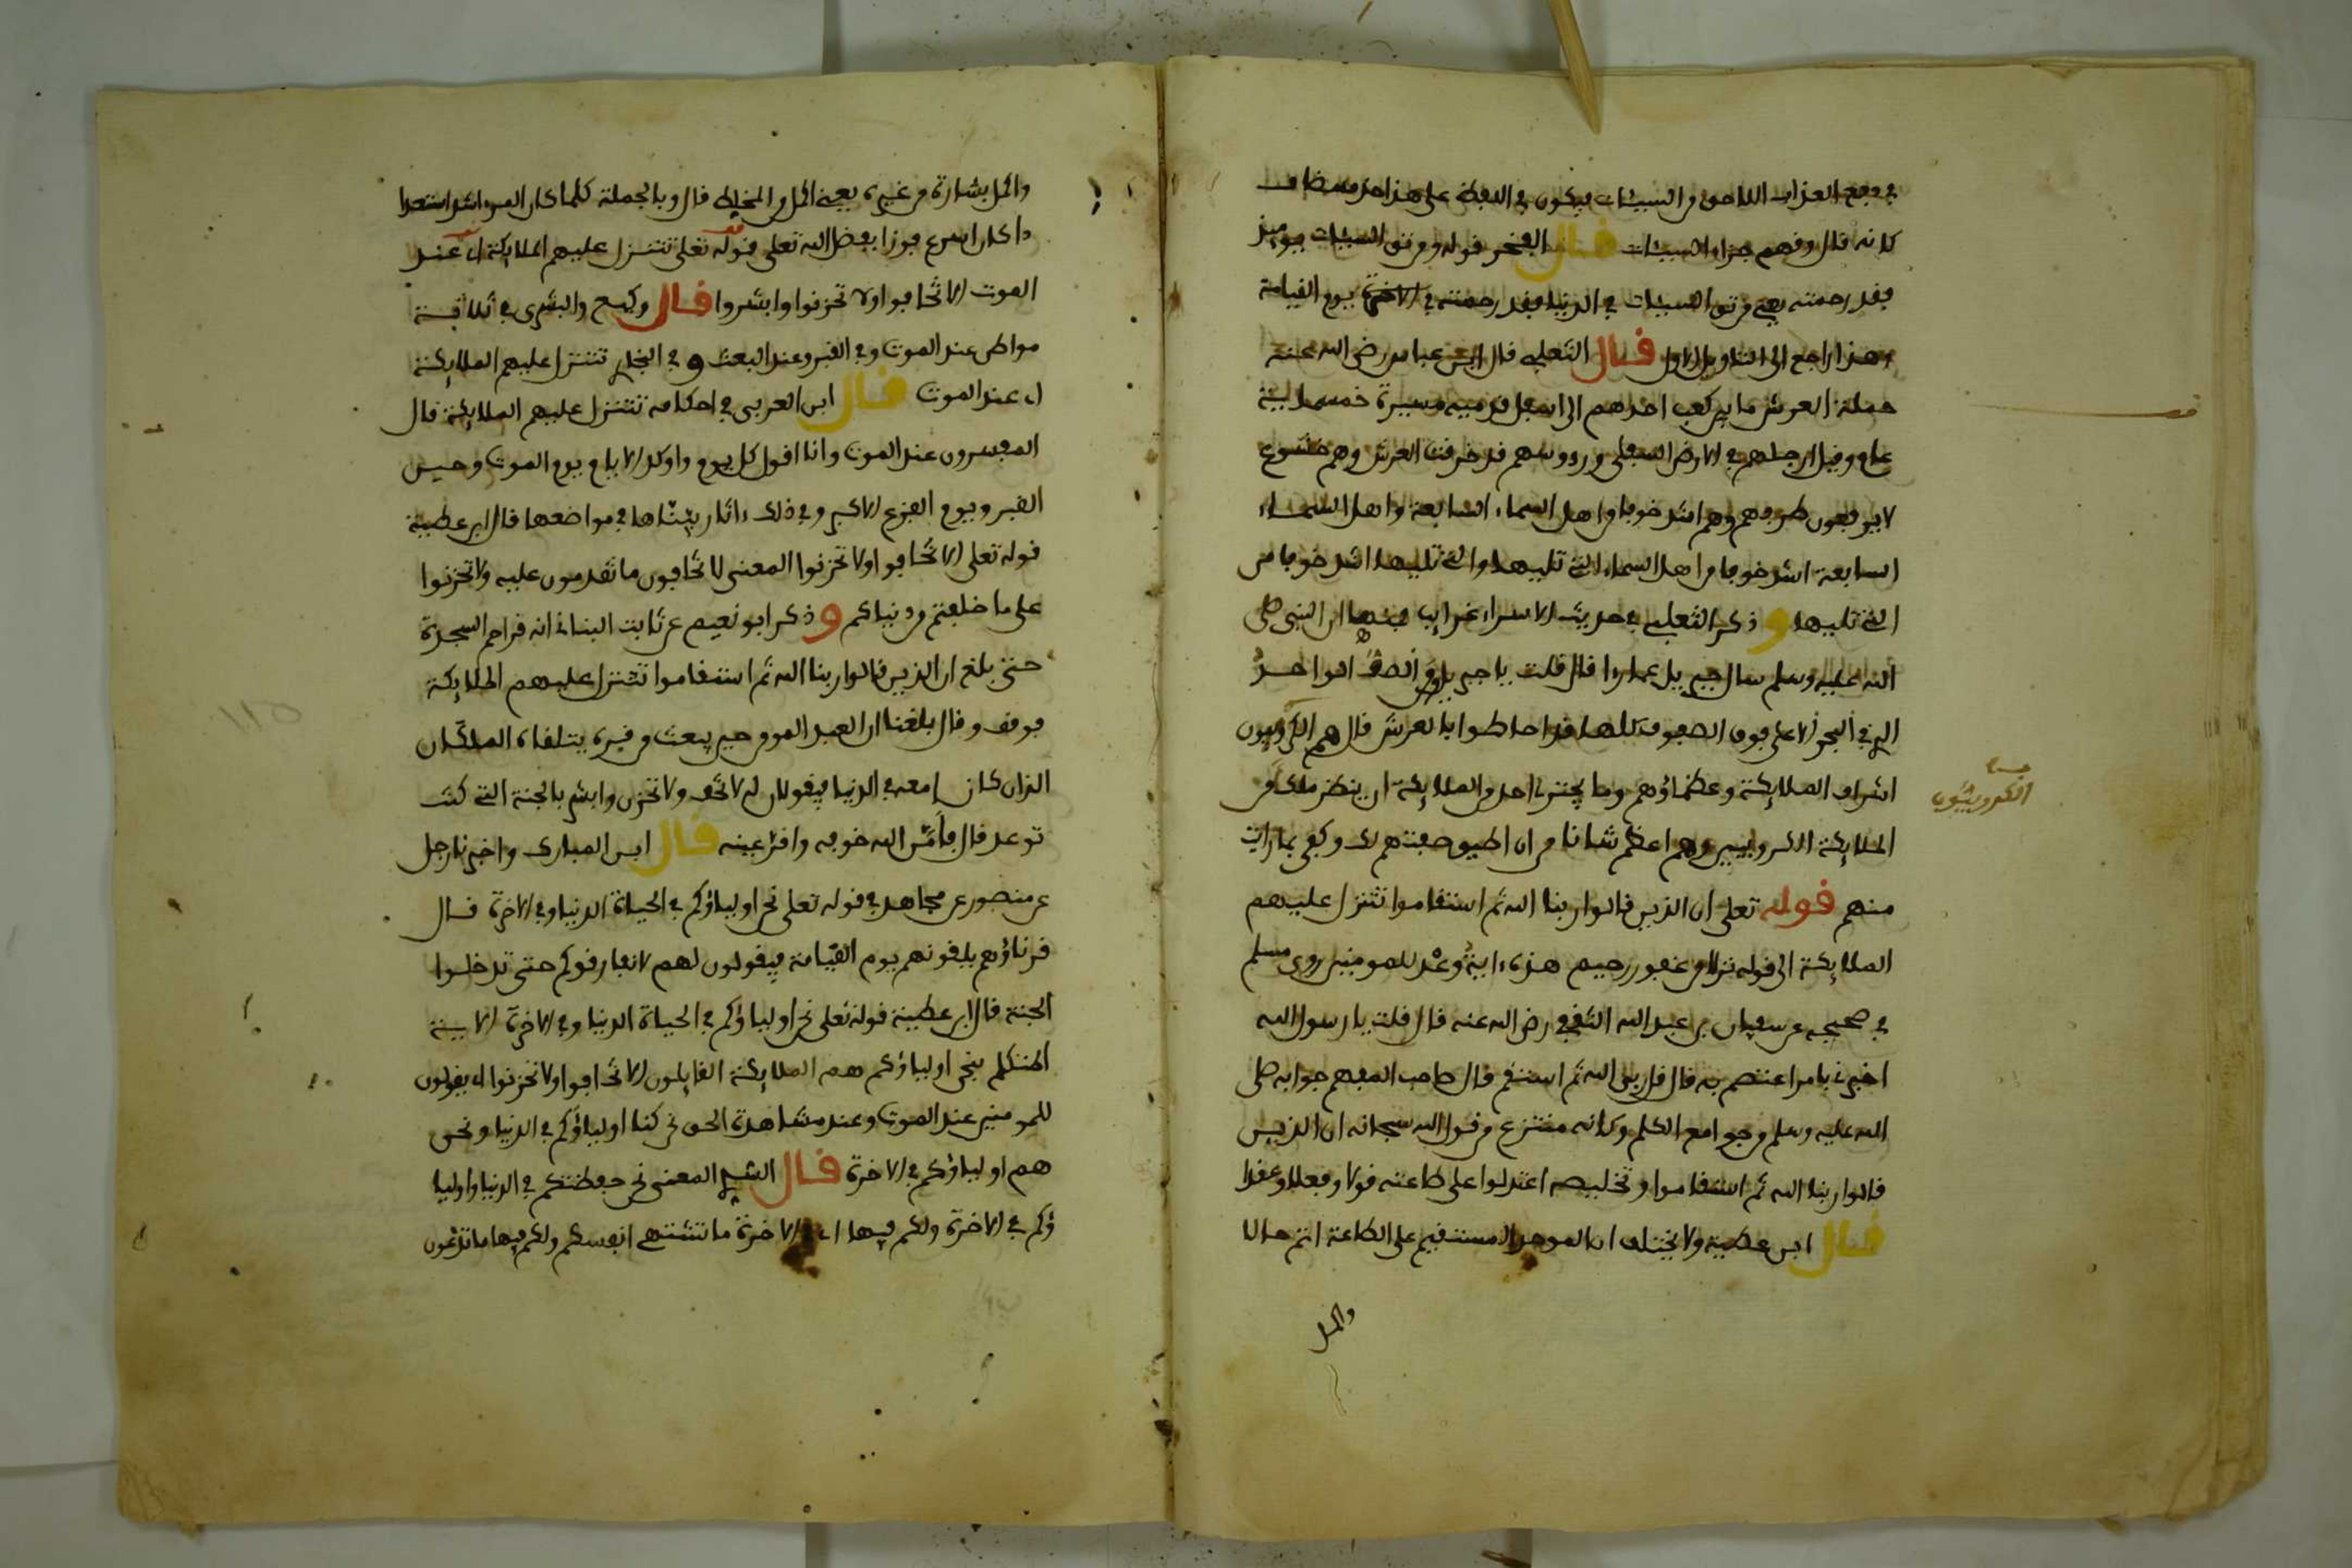 في دفع العذاب اللاحق من السيئات فيكون في اللفظ على هذا حذف مضاف
كانه قال وقهم جزاء السيئات قال الفخر قوله ومن تق السيئات يومئذ
فقد رحمته يعني من تق السيئات في الدنيا فقد رحمته في الاخرة يوم القيامة
وهذا راجع الى التاويل الاول قال الثعلبي قال ابن عباس رضي الله عنه
حملة العرش ما بين كعب احدهم الى اسفل قدميه مسيرة خمسماية
عام وقيل ارجلهم في الارض السفلى ورءوسهم قد خرقت العرش وهم خشوع
لا يرفعون طرفهم وهم اشد خوفا من اهل السماء السابعة واهل السماء
السابعة اشد خوفا من اهل السماء التي تليها والتي تليها اشد خوفا من
التي تليها وذكر الثعلبي في حديث الاسراء غرايب منها ان النبي صلى
الله عليه وسلم سال جبريل قال قلت يا جبريل والصف الواحد
الذي في البحر الاعلى فوق الصفوف كلها قد احاطوا بالعرش قال هم الكروبيون
اشراف الملايكة وعظماؤهم وما يجترئ احد من الملايكة ان ينظر ملك من
الملايكة الكروبيين وهم اعظم شانا من ان اطيق صفتهم لك وكفى بما رايت
منهم قوله تعلى ان الذين قالوا ربنا الله ثم استقاموا تتنزل عليهم
الملايكة الى قوله نزلا من غفور رحيم هذه ءاية وعد للمومنين روى مسلم
في صحيحه عن سفيان بن عبد الله الثقفي رضي الله عنه قال قلت يا رسول الله
اخبرني بامر اعتصم به قال قل ربي الله ثم استقم قال صاحب المفهم جوابه صلى
الله عليه وسلم من جوامع الكلم وكانه منتزع من قول الله سبحانه ان الذين
قالوا ربنا الله ثم استقاموا وتخليصه اعتدلوا على طاعته قولا وفعلا وعقدا
قال ابن عطية ولا يختلف ان الموحد المستقيم على الطاعة اتم حالا
واكمل
الكروبيون
واكمل بشارة من غيره يعني اكمل من المخلط قال وبالجملة كلما كان المرء اشد استعدادا
كان اسرع فوزا بفضل الله تعلى قوله تعلى تتنزل عليهم الملايكة اي عند
الموت الا تخافوا ولا تحزنوا وابشروا قال وكيع والبشرى في ثلاثة
مواطن عند الموت وفي القبر وعند البعث وفي البخاري تتنزل عليهم الملايكة
اي عند الموت قال ابن العربي في احكامه تتنزل عليهم الملايكة قال
المفسرون عند الموت وانا اقول كل يوم واوكد الايام يوم الموت وحين
القبر ويوم الفزع الاكبر وفي ذلك ءاثار بيناها في مواضعها قال ابن عطية
قوله تعلى الا تخافوا ولا تحزنوا المعنى لا تخافون ما تقدمون عليه ولا تحزنوا
على ما خلفتم من دنياكم وذكر ابو نعيم عن ثابت البناني انه قرا حم السجدة
حتى بلغ ان الذين قالوا ربنا الله ثم استقاموا تتنزل عليهم الملايكة
فوقف وقال بلغنا ان العبد المومن حين يبعث من قبره يتلقاه الملكان
الذان كانا معه في الدنيا فيقولان له لا تخف ولا تحزن وابشر بالجنة التي كنت
توعد قال فامّن الله خوفه واقر عينه قال ابن المبارك واخبرنا رجل
عن منصور عن مجاهد في قوله تعلى نحن اولياؤكم في الحياة الدنيا وفي الاخرة قال
قرناؤهم يلقونهم يوم القيامة فيقولون لهم لا نفارقوكم حتى تدخلوا
الجنة قال ابن عطية قوله تعلى نحن اولياؤكم في الحياة الدنيا وفي الاخرة الاية
المتكلم بنحن اولياؤكم هم الملايكة القايلون الا تخافوا ولا تحزنوا اي يقولون
للمومنين عند الموت وعند مشاهدة الحق نحن كنا اولياؤكم في الدنيا ونحن
هم اولياؤكم في الاخرة قال السدي المعنى نحن حفظتكم في الدنيا واوليا
ؤكم في الاخرة ولكم فيها اي في الاخرة ما تشتهي انفسكم ولكم فيها ما تدعون